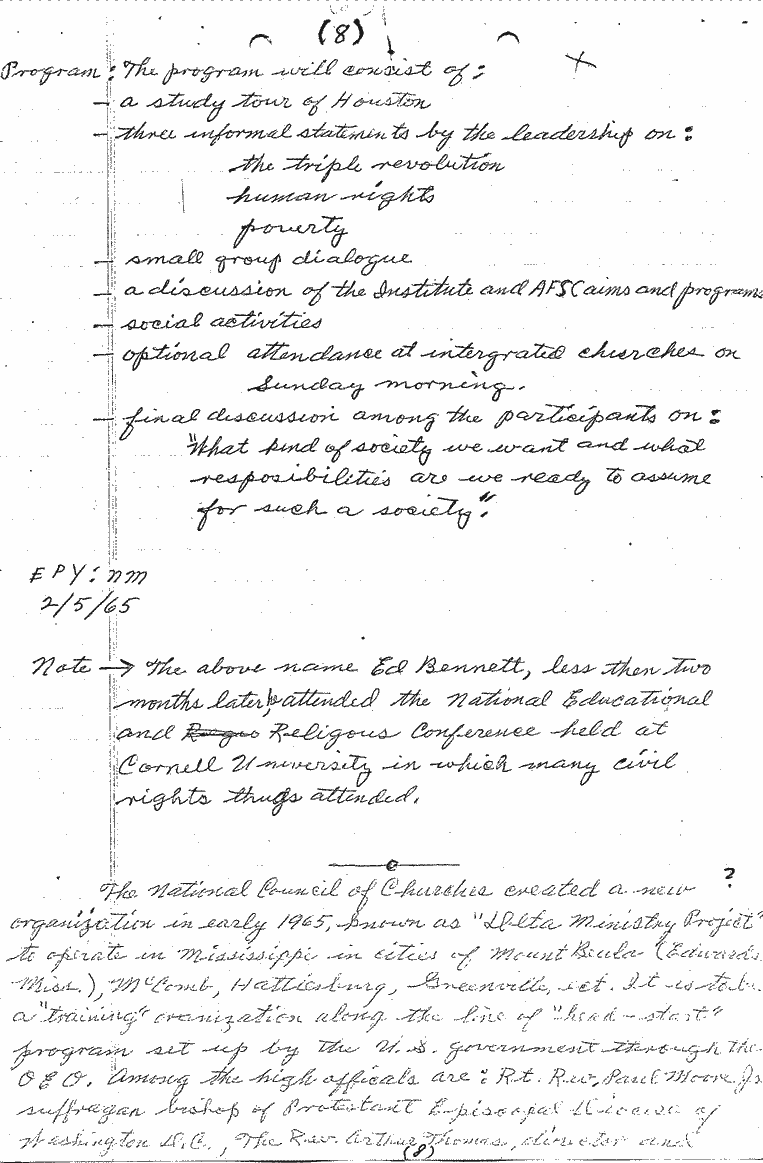 (8)
Program: The program will consist of:
— a study tour of Houston
— three informal statements by the leadership on:
the triple revolution
human rights
poverty
— small group dialogue
— a discussion of the Institute and AFSC aims and programs
— social activities
— optional attendance at intergrated churches on
Sunday morning.
— final discussion among the participants on:
"What kind of society we want and what
resposibilities are we ready to assume
for such a society".
EPY: nm
2/5/65
Note → The above name Ed Bennett, less then two
months later, attended the National Educational
and Religous Conference held at
Cornell University in which many civil
rights thugs attended.
?
The National Council of Churches created a new
organization in early 1965, known as "Delta Ministry Project"
to operate in Mississippi in cities of Mount Beula (Edwards
Miss.), McComb, Hattiesburg, Greenville, ect. It is to be
a "training" oranization along the line of "head-start"
program set up by the U.S. government through the
OEO. Among the high officals are: Rt. Rev. Paul Moore Jr.
suffragan bishop of Protestant Episcopal Diocese of
Washington D.C., The Rev. Arthur Thomas, director and
(8)